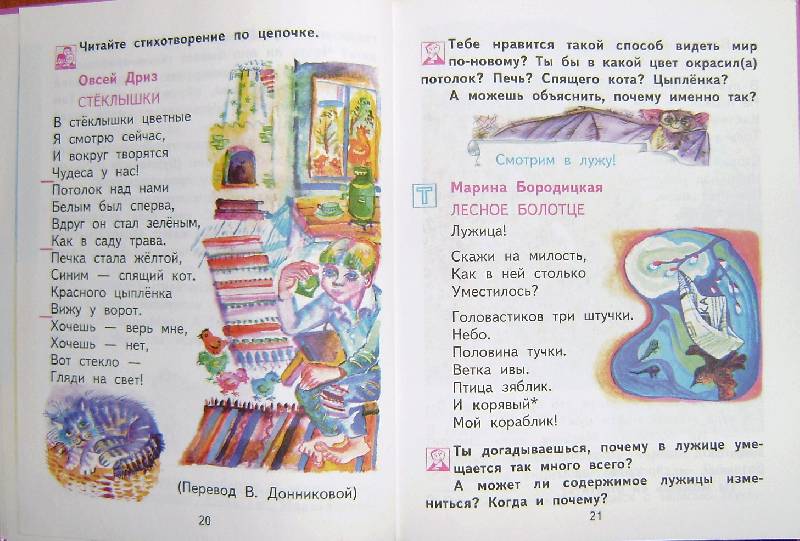 Читайте стихотворение по цепочке.
Овсей Дриз
СТЁКЛЫШКИ
В стёклышки цветные
Я смотрю сейчас,
И вокруг творятся
Чудеса у нас!
Потолок над нами
Белым был сперва,
Вдруг он стал зелёным,
Как в саду трава.
Печка стала жёлтой,
Синим — спящий кот.
Красного цыплёнка
Вижу у ворот.
Хочешь — верь мне,
Хочешь — нет,
Вот стекло —
Гляди на свет!
(Перевод В. Донниковой)
20
Тебе нравится такой способ видеть мир
по-новому? Ты бы в какой цвет окрасил(а)
потолок? Печь? Спящего кота? Цыплёнка?
А можешь объяснить, почему именно так?
Смотрим в лужу!
Т
Марина Бородицкая
ЛЕСНОЕ БОЛОТЦЕ
Лужица!
Скажи на милость,
Как в ней столько
Уместилось?
Головастиков три штучки.
Небо.
Половина тучки.
Ветка ивы.
Птица зяблик.
И корявый*
Мой кораблик!
КА
Ты догадываешься, почему в лужице уме-
щается так много всего?
А может ли содержимое лужицы изме-
ниться? Когда и почему?
21